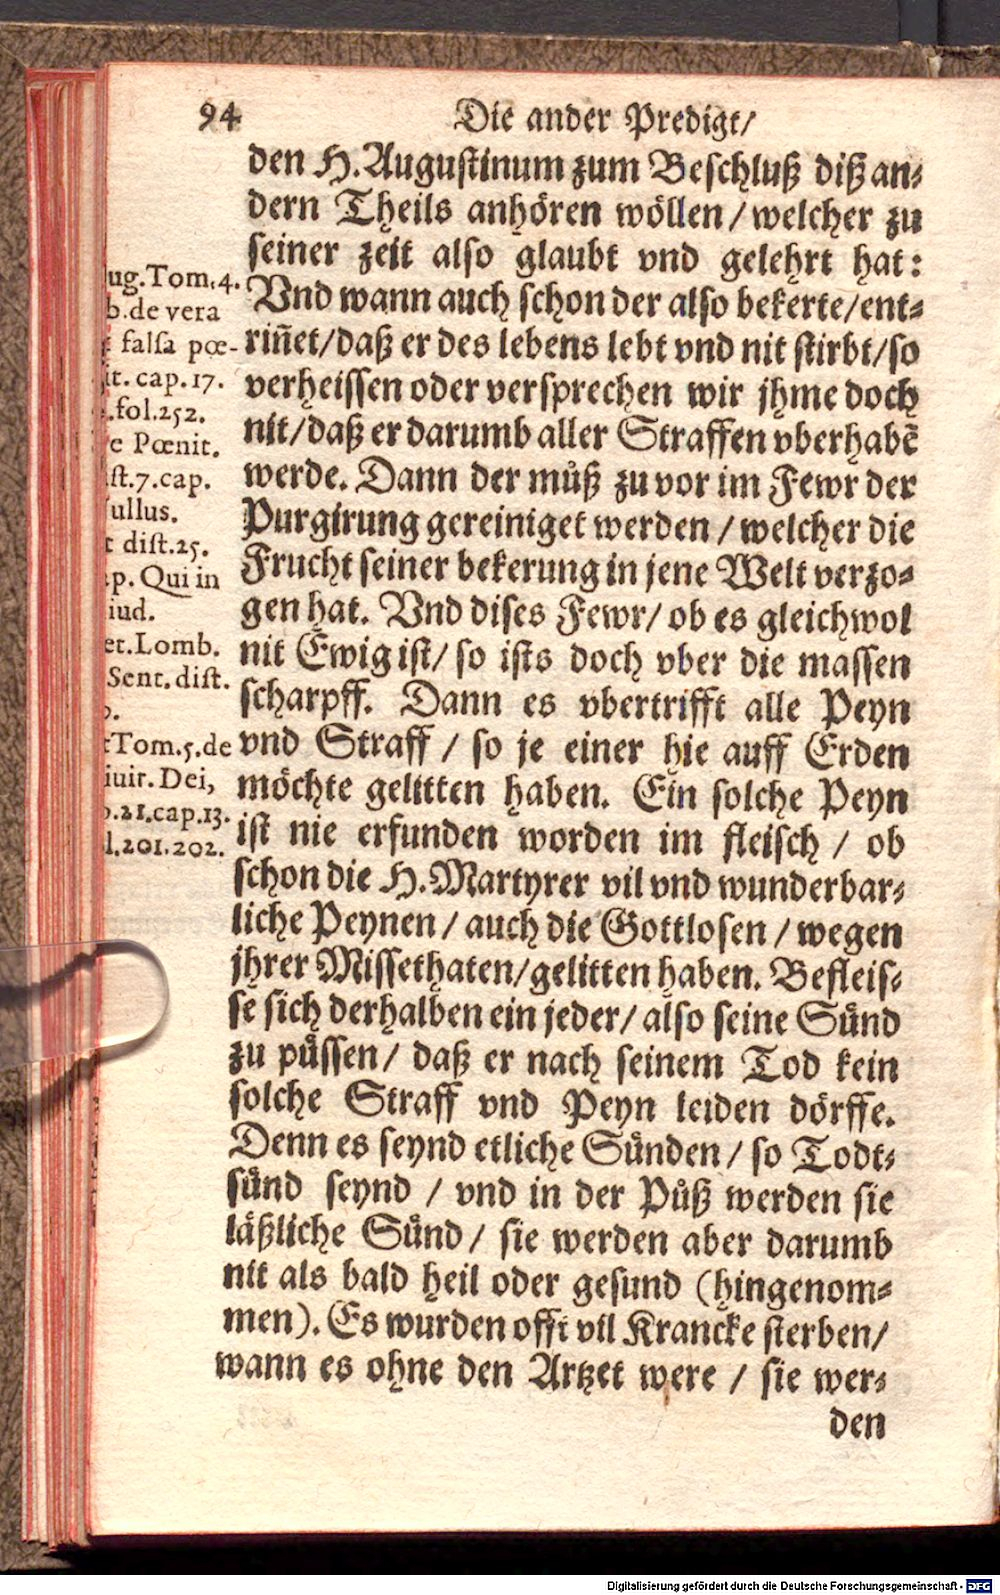 94
Die ander Predigt/
den H. Augustinum zum Beschluß diß an-
dern Theils anhören wöllen / welcher zu
seiner zeit also glaubt vnd gelehrt hat:
Vnd wann auch schon der also bekerte/ent-
riñet/daß er des lebens lebt vnd nit stirbt/so
verheissen oder versprechen wir jhme doch
nit/daß er darumb aller Straffen vberhabẽ
werde. Dann der muͤß zu vor im Fewr der
Purgirung gereiniget werden / welcher die
Frucht seiner bekerung in jene Welt verzo-
gen hat. Vnd dises Fewr/ ob es gleichwol
nit Ewig ist/ so ists doch vber die massen
scharpff. Dann es vbertrifft alle Peyn
vnd Straff / so je einer hie auff Erden
möchte gelitten haben. Ein solche Peyn
ist nie erfunden worden im fleisch / ob
schon die H. Martyrer vil vnd wunderbar-
liche Peynen / auch die Gottlosen / wegen
jhrer Missethaten/gelitten haben. Befleis-
se sich derhalben ein jeder/ also seine Suͤnd
zu puͤssen/ daß er nach seinem Tod kein
solche Straff vnd Peyn leiden dörffe.
Denn es seynd etliche Suͤnden / so Todt-
suͤnd seynd / vnd in der Puͤß werden sie
läßliche Suͤnd / sie werden aber darumb
nit als bald heil oder gesund (hingenom-
men). Es wurden offt vil Krancke sterben/
wann es ohne den Artzet were / sie wer-
den
ug. Tom. 4.
b. de vera
falsa pœ-
it. cap. 17.
fol. 252.
e Pœnit.
ist. 7. cap.
ullus.
t dist. 25.
p. Qui in
iud.
et. Lomb.
Sent. dist.
Tom. 5. de
iuit. Dei,
b. 21. cap. 13.
l. 201. 202.
Digitalisierung gefördert durch die Deutsche Forschungsgemeinschaft - DFG